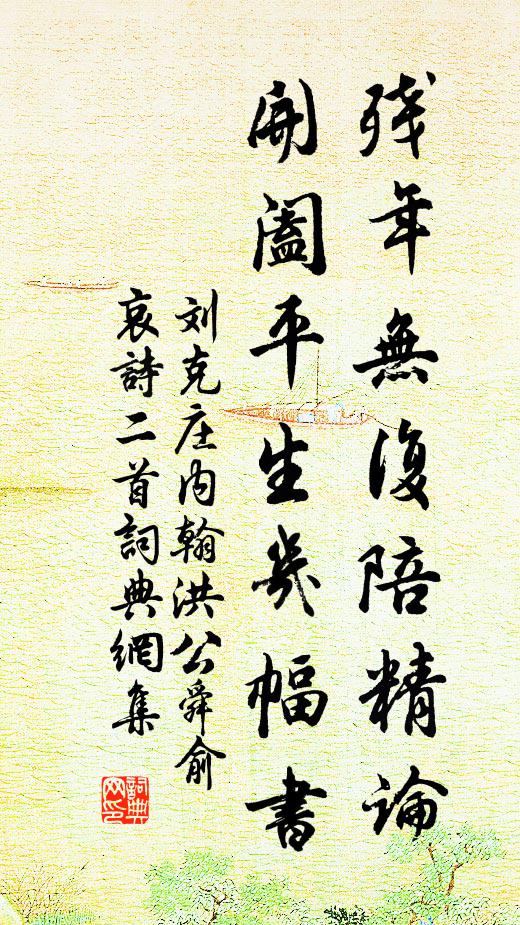 残年無復陪精論
開闔平生幾幅書
刘克庄内翰洪公舜俞
哀詩二首詞典網集
詞典网印